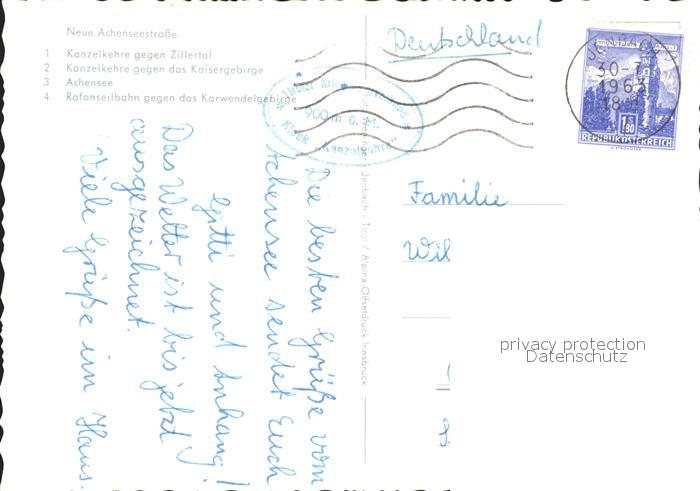 Neue Achenseestraße
1 Kanzelkehre gegen Zillertal
2 Kanzelkehre gegen das Kaisergebirge
3 Achensee
4 Rofanseilbahn gegen das Karwendelgebirge
Deutschland
30-7
1963
18
1.80
REPUBLIK ÖSTERREICH
900 m ü. M.
"Kanzelkehre"
Jenbach - Tirol / Alpina Offsetdruck Innsbruck
Die besten Grüße vom
Achensee sendet Euch
Gitti und Anhang!
Das Wetter ist bis jetzt
ausgezeichnet.
Viele Grüße im Haus.
Familie
Wil
privacy protection
Datenschutz